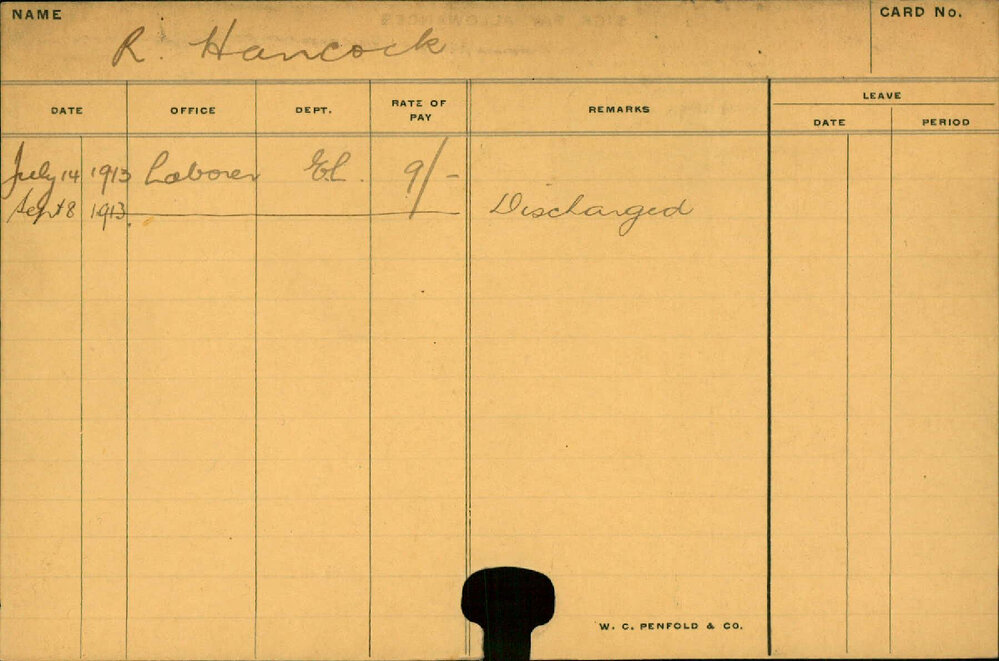 NAME R. Hancock CARD No.
DATE OFFICE DEPT. RATE OF PAY REMARKS LEAVE
DATE PERIOD
July 14 1913 Laborer El. 9/-
Sept 8 1913. Discharged
W. C. PENFOLD & CO.